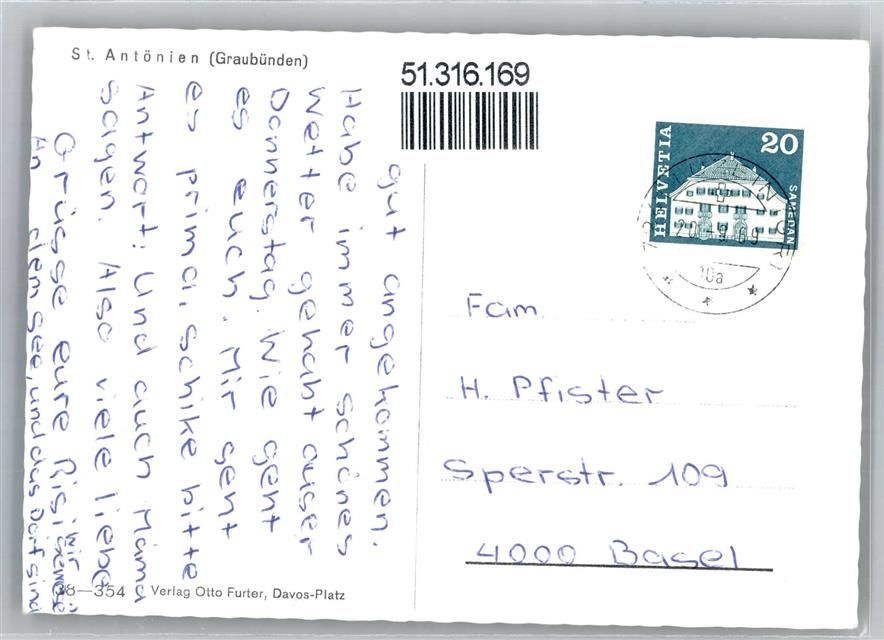 St. Antönien (Graubünden)
51.316.169
HELVETIA
20
SAMEDAN
20.-9.69
10a
gut angekommen.
Habe immer schönes
Wetter gehabt auser
Donnerstag. Wie geht
es euch. Mir geht
es prima, schike bitte
Antwort! Und auch Mama
sagen. Also viele liebe
Grüsse eure Risi
An dem See, und das Dorf sind
wir
Fam.
H. Pfister
Sperstr. 109
4000 Basel
38—354 Verlag Otto Furter, Davos-Platz